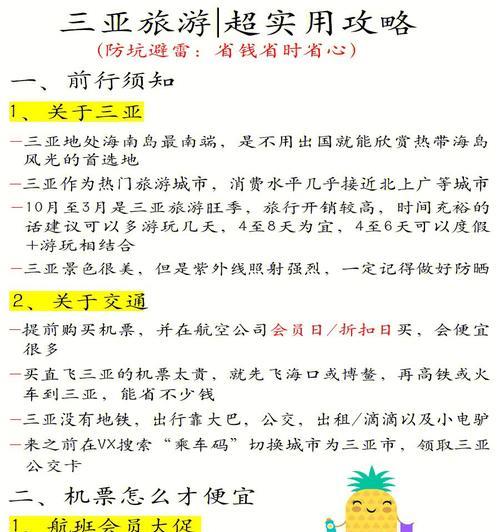 三亚旅游|超实用攻略
(防坑避雷：省钱省时省心)
一、前行须知
1、关于三亚
—三亚地处海南岛最南端，是不用出国就能欣赏热带海岛
风光的首选地
—三亚作为热门旅游城市，消费水平几乎接近北上广等城市
—10月至3月是三亚旅游旺季，旅行开销较高，时间充裕的
话建议可以多游玩几天，4至8天为宜，4至6天可以度假
+游玩相结合
—三亚景色很美，但是紫外线照射强烈，一定记得做好防晒
2、关于交通
—提前购买机票，并在航空公司会员日/折扣日买，会便宜
很多
—买直飞三亚的机票太贵，就先飞海口或博鳌，再高铁或火
车到三亚，能省不少钱
—三亚没有地铁，出行靠大巴，公交，出租/滴滴以及小电驴
—来之前在VX搜索“乘车码”切换城市为三亚市，领取三亚
公交卡
二、机票怎么才便宜
1、航班会员大促